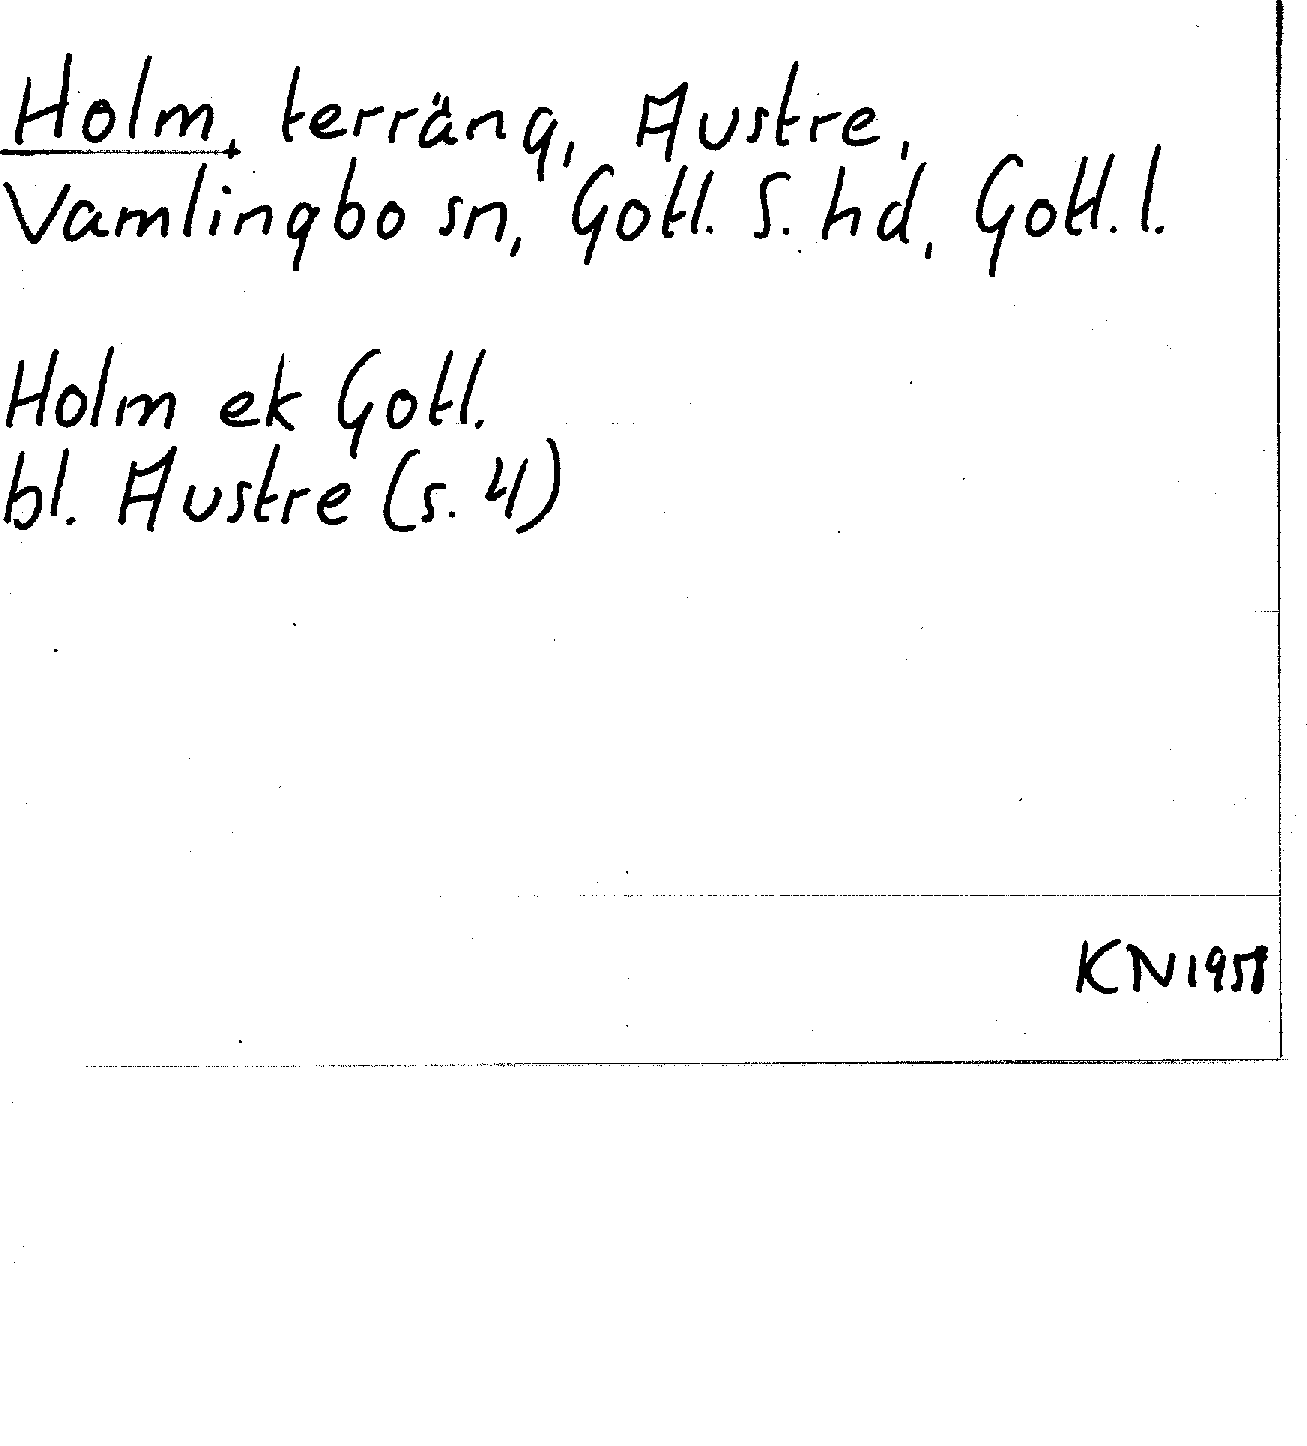 Holm, terräng, Austre,
Vamlingbo sn, Gotl. S. hd, Gotl. l.
Holm ek Gotl.
bl. Austre (s. 4)
KN 1958